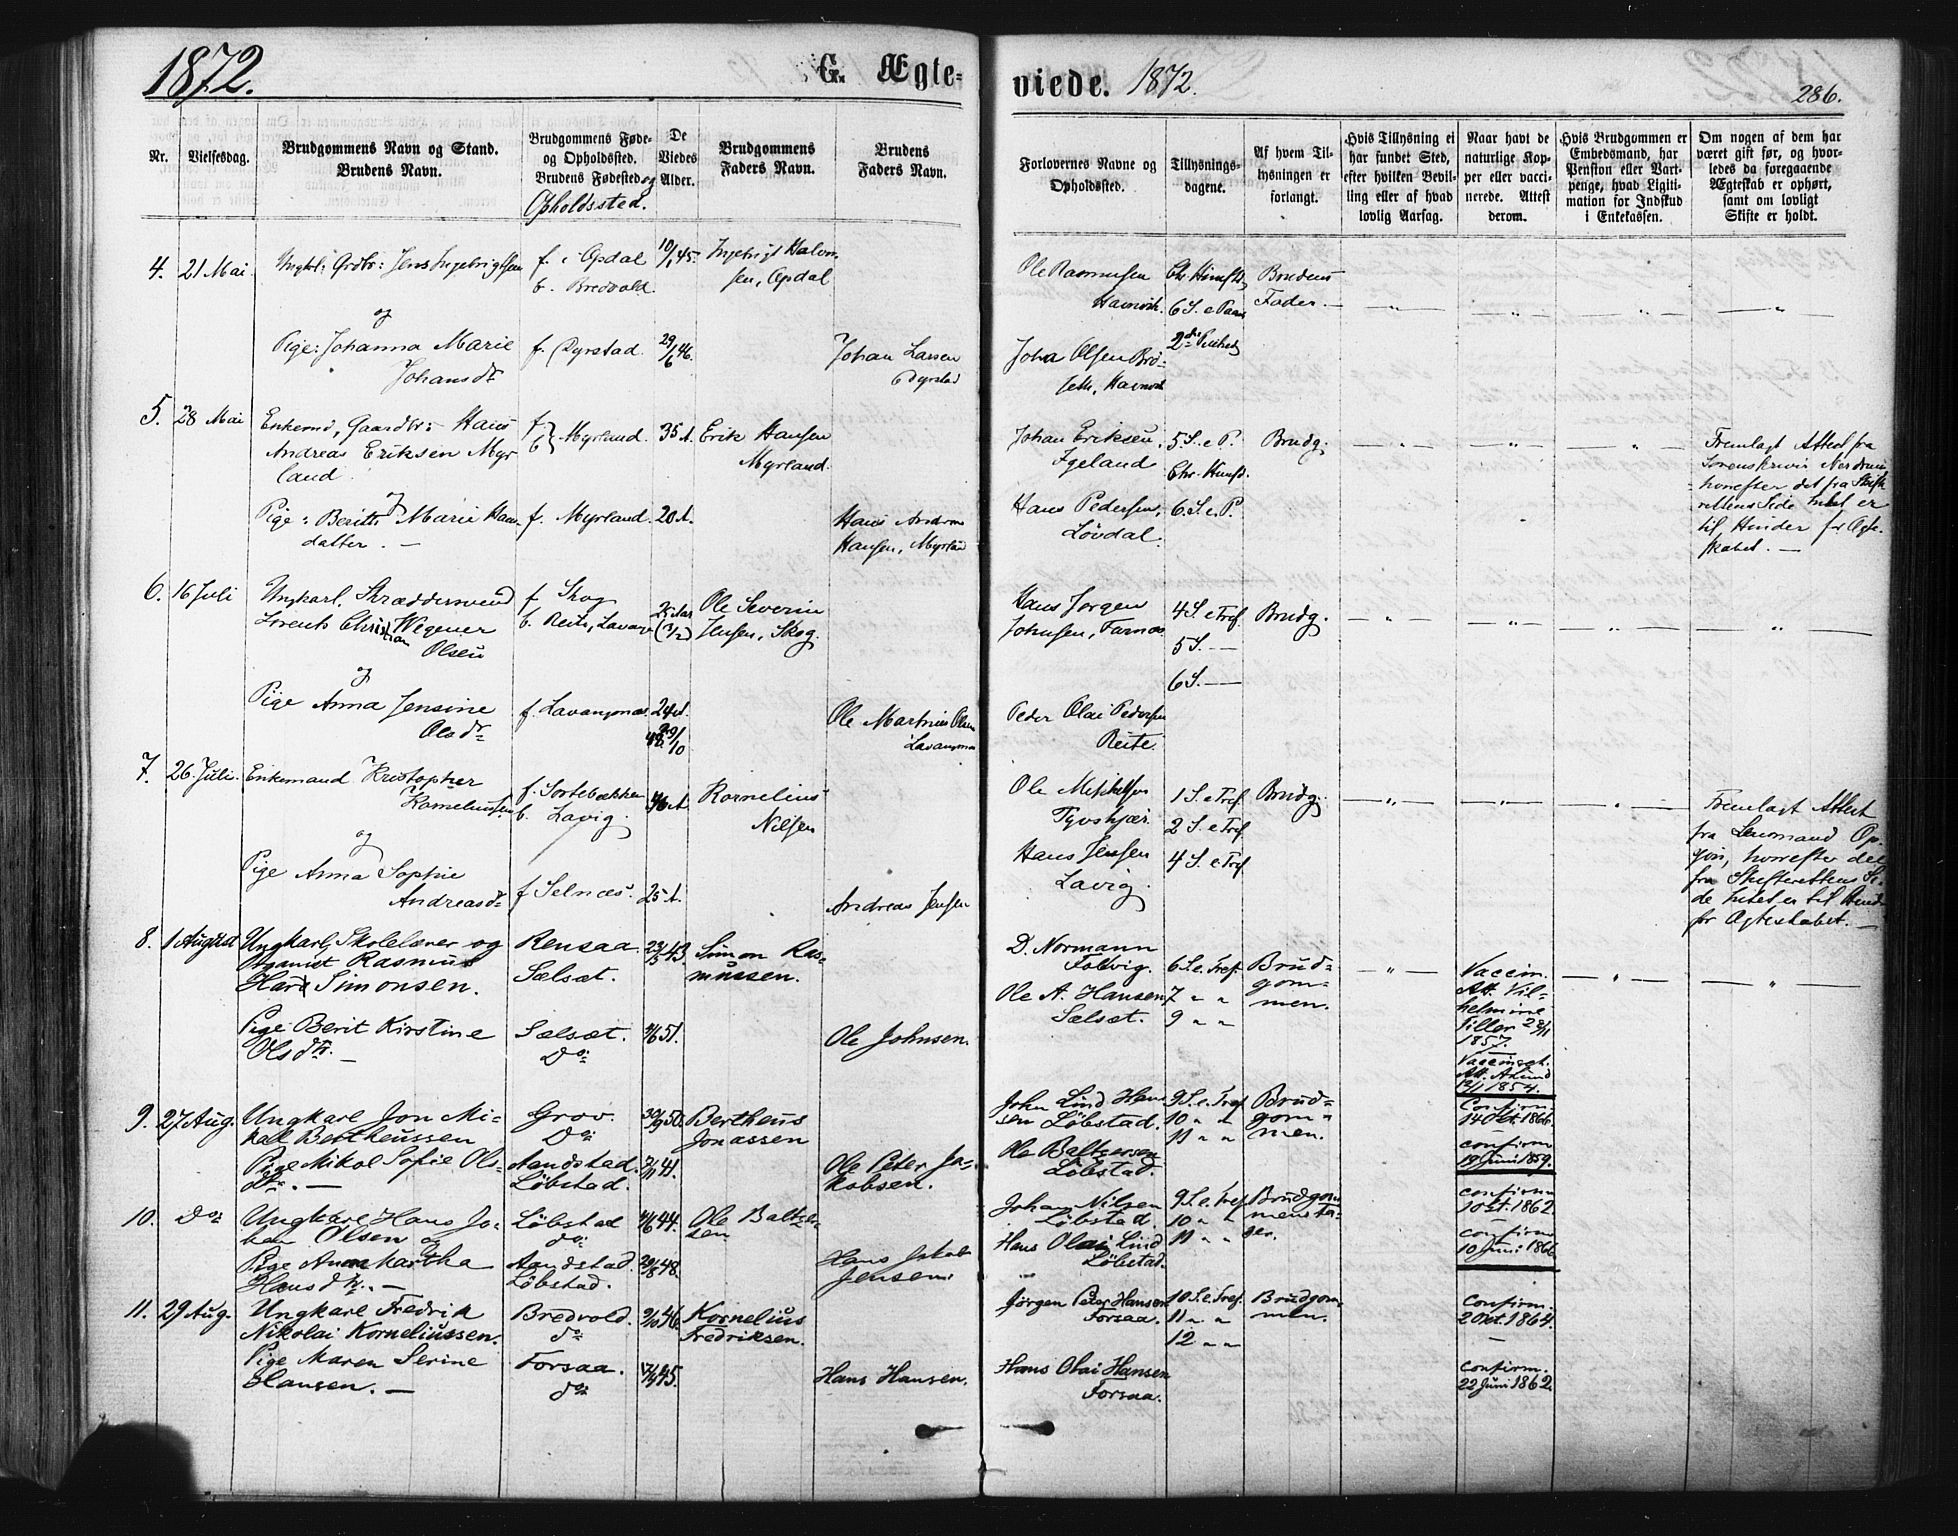 1872.
G. Ægte-
viede. 1872.
286.
Nr.
Vielsesdag.
Brudgommens Navn og Stand.
Brudens Navn.
Brudgommens Føde-
og Opholdssted.
Brudens Fødested og
Opholdssted.
De
Viedes
Alder.
Brudgommens
Faders Navn.
Brudens
Faders Navn.
Forlovernes Navne og
Opholdssted.
Tillysnings-
dagene.
Af hvem Til-
lysningen er
forlangt.
Hvis Tillysning ei
har fundet Sted,
efter hvilken Bevil-
ling eller af hvad
lovlig Aarsag.
Naar havt de
naturlige Kop-
per eller vacci-
nerede. Attest
derom.
Hvis Brudgommen er
Embedsmand, har
Pension eller Vart-
penge, hvad Ligiti-
mation for Indskud
i Enkekassen.
Om nogen af dem har
været gift før, og hvor-
ledes da foregaaende
Ægteskab er ophørt,
samt om lovligt
Skifte er holdt.
4. 21 Mai.
Ungkl: Grdbr: Jens Ingebrigtsen
og
Pige: Johanna Marie
Johansdr
f. i Opdal
b. Bredvold.
f. Dyrstad.
10/1 45.
29/6 46.
Ingebrigt Halvor
sen, Opdal
Johan Larsen
Dyrstad
Ole Rasmusen
Havnvik.
Johan Olsen Brö-
seth, Havnvik
Chr. Himfd
6 S. e Paas
2den
Brudens
Fader.
5. 28 Mai
Enkemd, Gaardbr: Hans
Andreas Eriksen Myr
land.
og
Pige: Berith Marie Hans
datter. —
f.
b. Myrland.
f. Myrland.
35 A.
20 A.
Erik Hansen
Myrland.
Hans Andreas
Hansen, Myrland
Johan Eriksen,
Igeland
Hans Pedersen,
Lövdal.
5 S. e P.
Chr. Himfd.
6. S. e P.
Brudg.
Fremlagt Attest fra
Sorenskriver
hvorefter det fra Skift
rettens Side Intet er
til Hinder for Ægte-
skabet. —
6. 16 Juli
Ungkarl, Skræddersvend
Lorents Christian Wegener
Olsen
og
Pige Anna Jensine
Olsdr
f. Skog
b. Reite, Lavang
f. Lavangsnæs
25 Aar
(3/2)
24 A.
29/10
Ole Severin
Jensen, Skog.
Ole Martinus Olsen
Lavangsnæs
Hans Jørgen
Johnsen,
Peder Olai Pedersen
Reite.
4 S. e Tref.
5 S. —
6 S. —
Brudg.
7. 26. Juli.
Enkemand Kristopher
Korneliussen
og
Pige Anna Sophie
Andreasdr
f. Sortebækken
b. Lavig.
f. Selnæs
46 A.
25 A.
Kornelius
Nilsen
Andreas Jensen
Ole Mikkelsen
Tyvskjær.
Hans Jensen
Lavig.
1 S. e Tref.
2 S. e Tref.
4 S. e Tref.
Brudg.
Fremlagt Attest
fra Lensmand Op-
hvorefter det
fra Skifterettens Si-
de Intet er til Hind-
for Ægteskabet. —
8. 1 August
Ungkarl, Skolelærer og
Organist Rasmus
Hard Simonsen.
Pige Berit Kirstine
Olsdtr. —
Rensaa.
Sælsæt.
Sælsæt.
Do
23/5 43.
51.
Simon Ras-
mussen.
Ole Johnsen.
D. Normann
Foldvig.
Ole A. Hansen
Sælsæt.
6 S. e. Tref.
7 " "
9 " "
Brud-
gom-
men.
Vaccin.
Att. Vil-
helmine
Tiller
1857.
Vaccinat.
Att.
1854.
9. 27 Aug.
Ungkarl Jon Mi-
kal Bertheussen
Pige Mikol Sofie Ols-
dtr. —
Grov.
Do
Aandstad.
Löbstad.
30/9 50.
41.
Bertheus
Jonassen
Ole Peter Ja-
kobsen.
John Lind Han-
sen Löbstad.
Ole Baltzersen
Löbstad.
9 S. e. Tref.
10 " "
11 " "
Brud-
gom-
men.
Confirm.
14 Okt. 1866.
confirm
19 Juni 1859.
10. Do
Ungkarl Hans Jo-
han Olsen og
Pige Anna Martha
Hansdtr. —
Löbstad
do
Aandstad.
Löbstad.
44.
29/8 48.
Ole Baltzer-
sen
Hans Jakob
Jensen.
Johan Nilsen
Löbstad.
Hans Olai Lind
Löbstad.
9 S. e Tref.
10 " "
11 " "
Brudgom
mens Fa-
der.
confirm
1 Okt. 1862.
confirm
10 Juni 1866
11. 29 Aug.
Ungkarl Fredrik
Nikolai Korneliussen.
Pige Maren Serine
Hansen. —
Bredvold.
do
Forsaa.
do
46.
45.
Kornelius
Fredriksen.
Hans Hansen.
Jørgen Peter Hansen
Forsaa.
Hans Olai Hansen
Forsaa.
10 S. e. Tref.
11 " "
12 " "
Brudgom-
men.
Confirm.
2 Okt. 1864.
confirm.
22 Juni 1862.